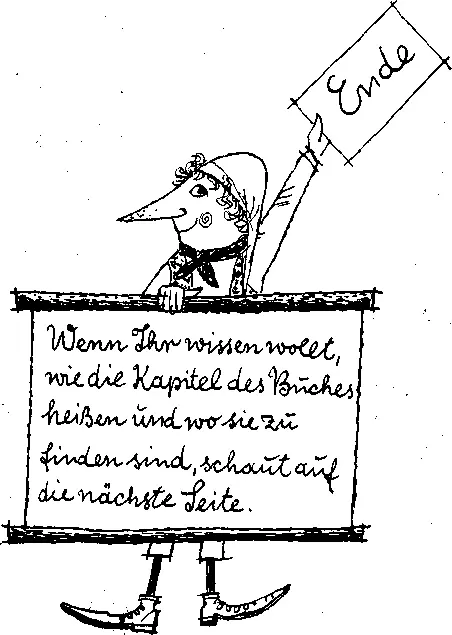 Ende
Wenn Ihr wissen wollt,
wie die Kapitel des Buches
heißen und wo sie zu
finden sind, schaut auf
die nächste Seite.